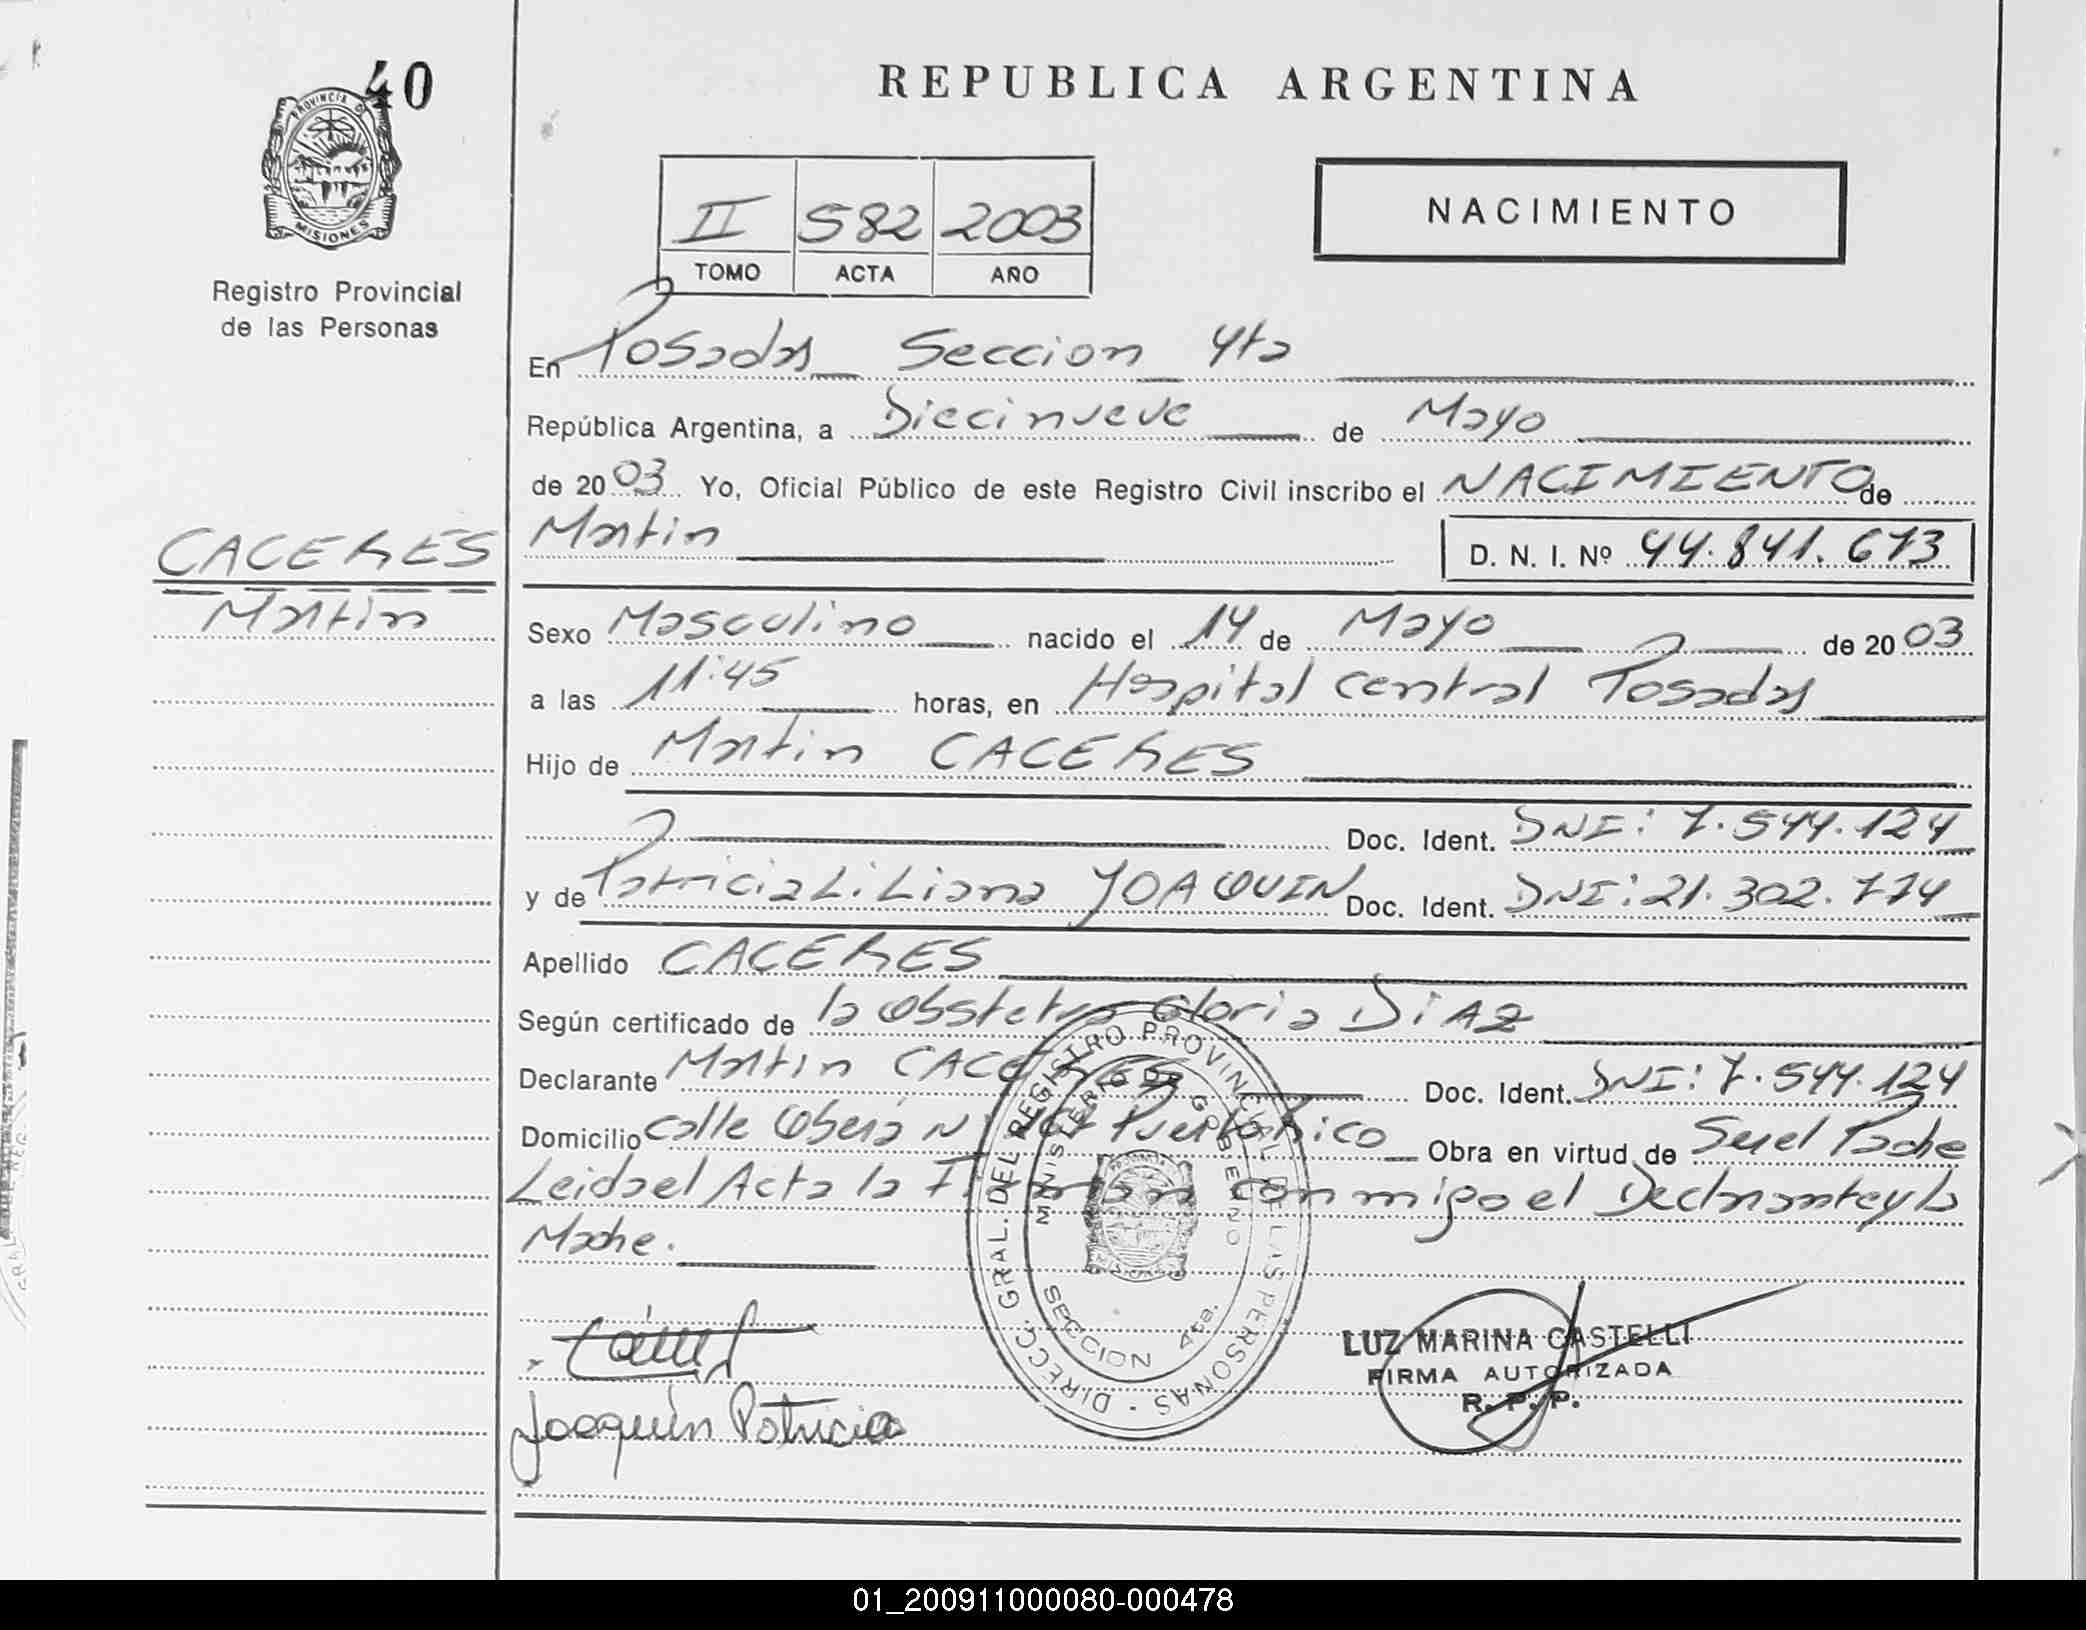 40
PROVINCIA DE
MISIONES
Registro Provincial
de las Personas
REPUBLICA ARGENTINA
II 582 2003
TOMO ACTA AÑO
NACIMIENTO
En Posadas Seccion 4ta
República Argentina, a Diecinueve de Mayo
de 2003 Yo, Oficial Público de este Registro Civil inscribo el NACIMIENTO de
Martin D. N. I. Nº 44.841.673
CACERES
Martin
Sexo Masculino nacido el 14 de Mayo de 2003
a las 11:45 horas, en Hospital Central Posadas
Hijo de Martin CACERES
Doc. Ident. DNI: 7.544.124
y de Patricia Liliana JOAQUIN Doc. Ident. DNI: 21.302.774
Apellido CACERES
Según certificado de la Obstetra Gloria DIAZ
Declarante Martin CACERES Doc. Ident. DNI: 7.544.124
Domicilio calle Oberá Puerto Rico Obra en virtud de Ser el Padre
Leida el Acta la Firman conmigo el Declarante y la
Madre.
DIRECC. GRAL. DEL REGISTRO PROVINCIAL DE LAS PERSONAS
MINISTERIO DE GOBIERNO
SECCION 4ta.
LUZ MARINA CASTELLI
FIRMA AUTORIZADA
R. P. P.
Joaquín Patricia
01_200911000080-000478